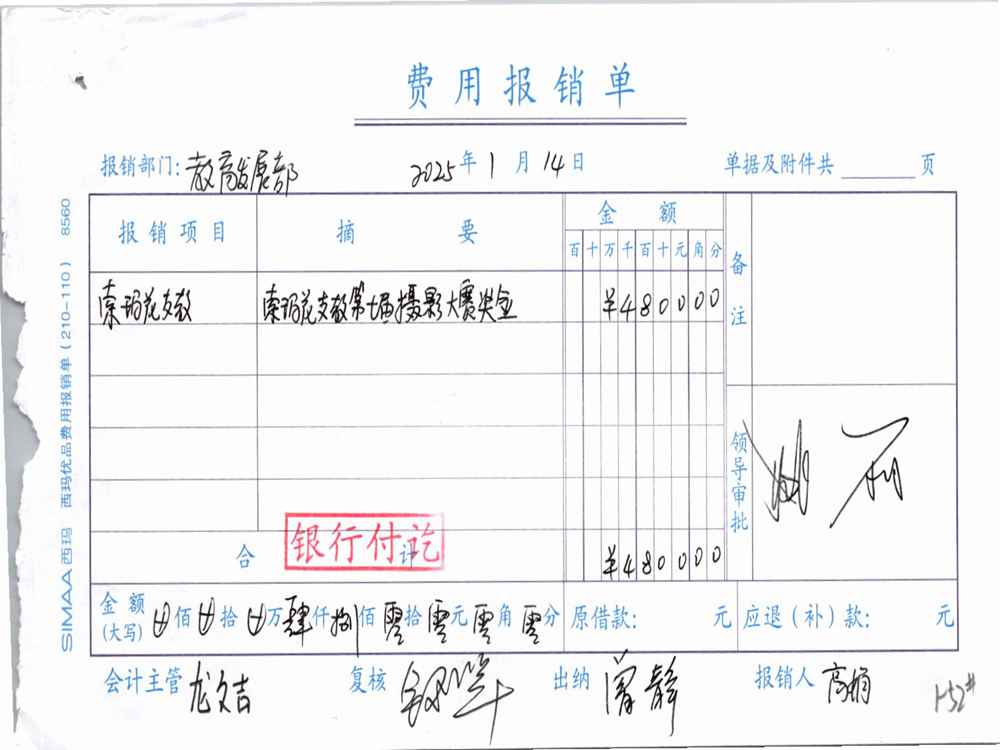 费用报销单
报销部门: 教育发展部 2025年1月14日 单据及附件共 页
报销项目 摘要 金额 备注
百十万千百十元角分
索玛花支教 索玛花支教第七届摄影大赛奖金 ¥480000
领导审批
合计 ¥480000
银行付讫
金额(大写) 佰 拾 万肆仟捌佰零拾零元零角零分 原借款: 元 应退(补)款: 元
会计主管 龙文吉 复核 出纳 曾静 报销人 高娟
1-52#
SIMAA西玛 西玛优品费用报销单(210-110) 8560